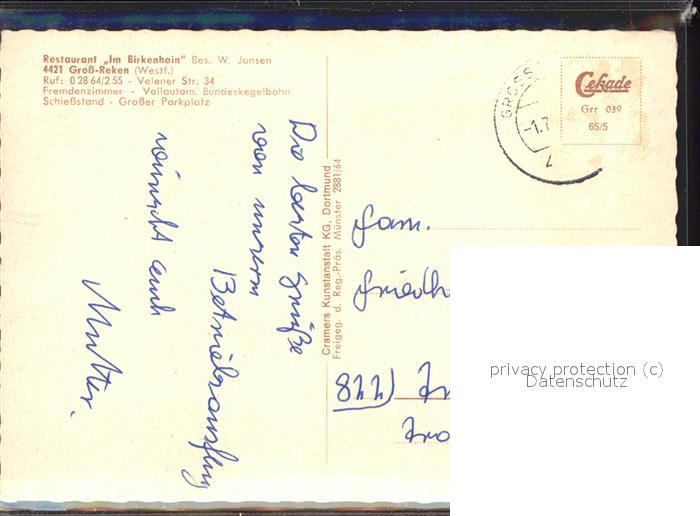 Restaurant „Im Birkenhain" Bes. W. Jansen
4421 Groß-Reken (Westf.)
Ruf: 0 28 64/2 55 - Velener Str. 34
Fremdenzimmer - Vollautom. Bundeskegelbahn
Schießstand - Großer Parkplatz
Die besten Grüße
von unserm
Betriebsausflug
wünscht euch
Mutter.
Cramers Kunstanstalt KG, Dortmund
Freigeg. d. Reg.-Präs. Münster 2881/64
GROSS
-1.7
Cekade
Grr 039
65/5
Fam.
Friedh
822)
privacy protection (c)
Datenschutz